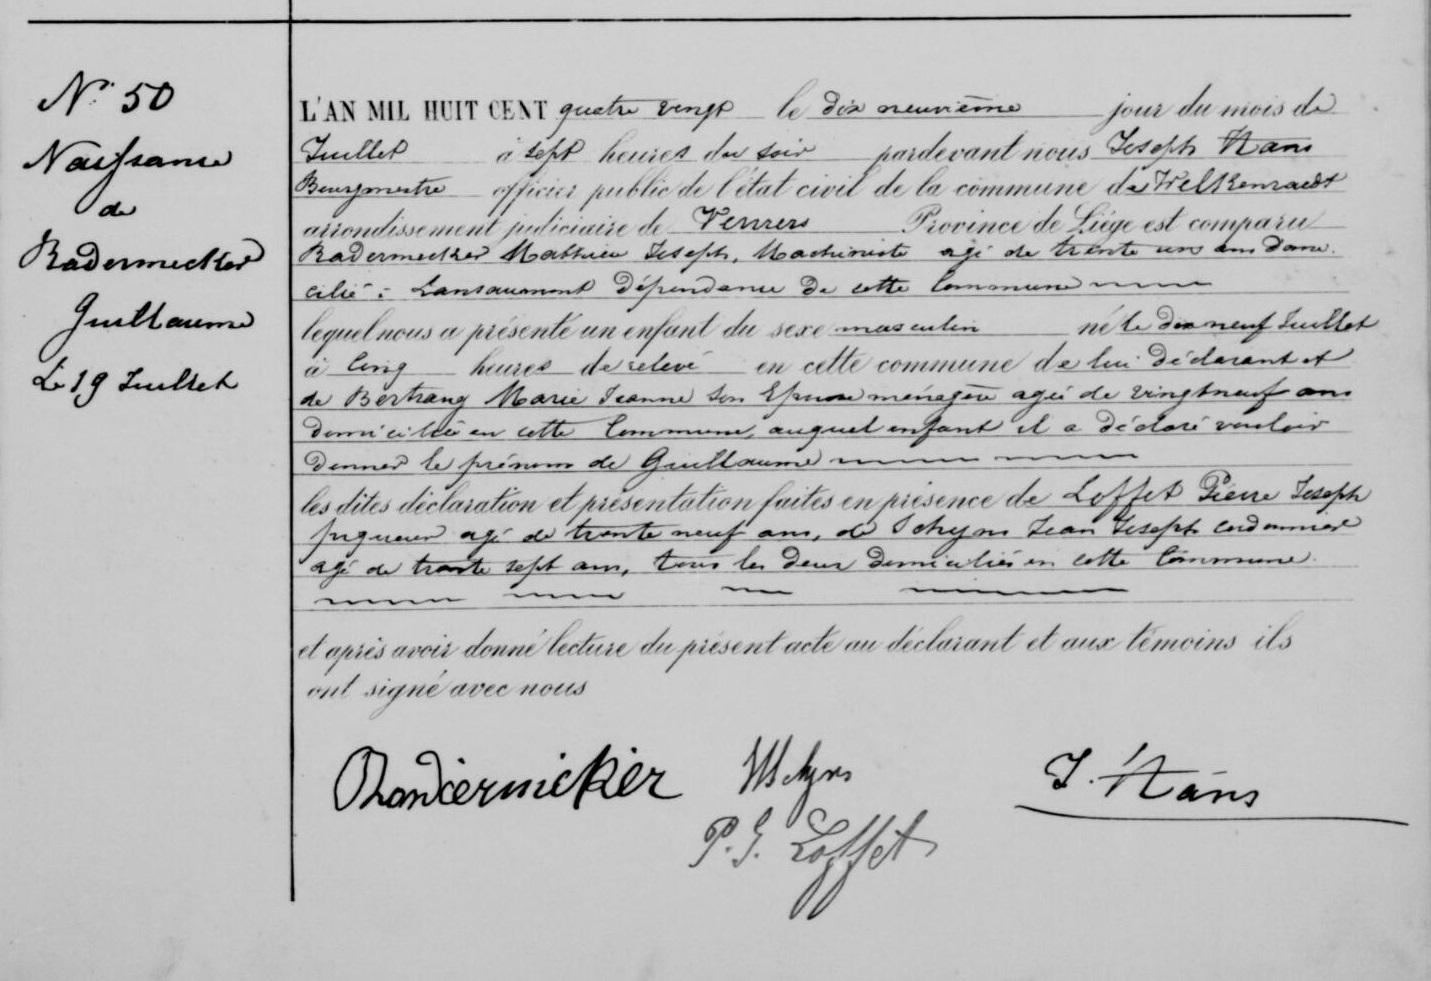 N° 50
Naissance
de
Radermecker
Guillaume
Le 19 Juillet
L'AN MIL HUIT CENT quatre vingt le dix neuvième jour du mois de
Juillet à sept heures du soir pardevant nous Joseph Hans
Bourgmestre officier public de l'état civil de la commune de Welkenraedt
arrondissement judiciaire de Verviers Province de Liége est comparu
Radermecker Mathieu Joseph, Machiniste agé de trente un ans domi
cilié à dépendance de cette Commune
lequel nous a présenté un enfant du sexe masculin né le dix neuf Juillet
à cinq heures de relevé en cette commune de lui déclarant et
de Bertrang Marie Jeanne son Epouse ménagère agée de vingt neuf ans
domiciliée en cette Commune, auquel enfant il a déclaré vouloir
donner le prénom de Guillaume
les dites déclaration et présentation faites en présence de Loffet Pierre Joseph
agé de trente neuf ans, de Schyns Jean Joseph cordonnier
agé de trente sept ans, tous les deux domiciliés en cette Commune.
et après avoir donné lecture du présent acte au déclarant et aux témoins ils
ont signé avec nous
Schyns
J. Hans
P. J. Loffet